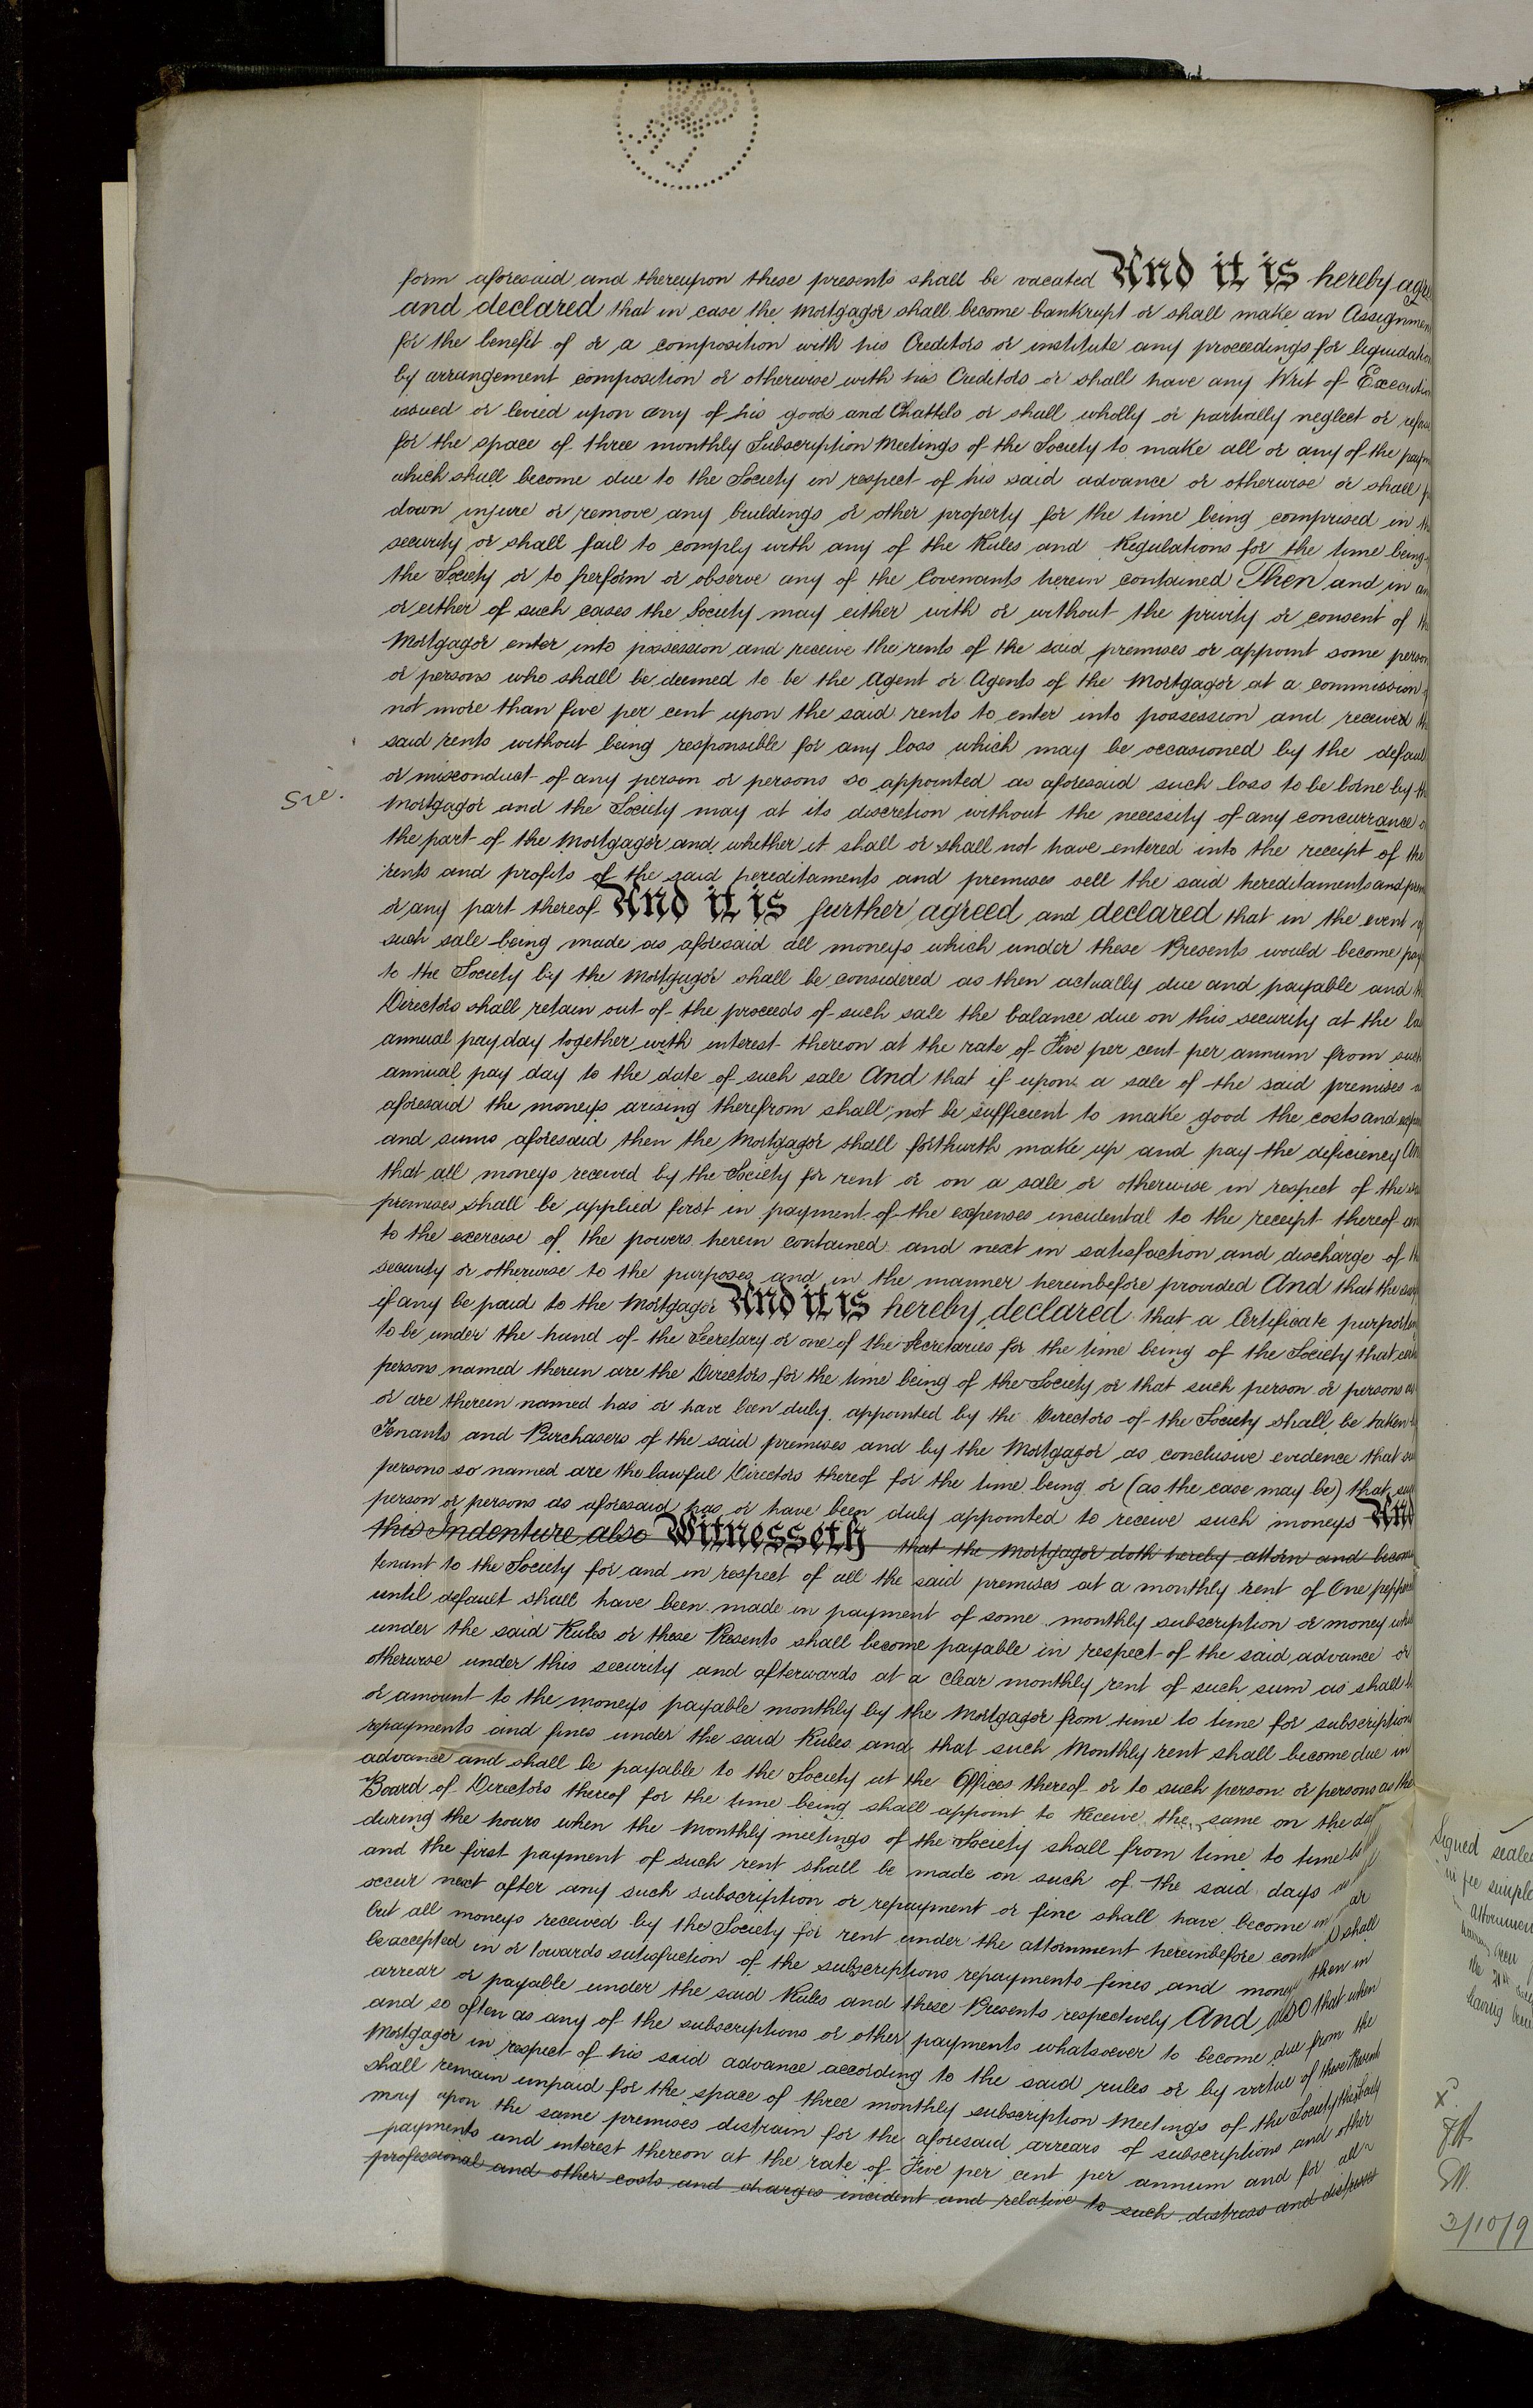 form aforesaid and thereupon these presents shall be vacated And it is hereby agre
and declared that in case the Mortgagor shall become bankrupt or shall make an Assignmen
for the benefit of or a composition with his Creditors or institute any proceedings for liquidation
by arrangement composition or otherwise with his Creditors or shall have any Writ of Execution
issued or levied upon any of his goods and Chattels or shall wholly or partially neglect or refuse
for the space of three monthly Subscription Meetings of the Society to make all or any of the paym
which shall become due to the Society in respect of his said advance or otherwise or shall
down injure or remove any buildings or other property for the time being comprised in th
security or shall fail to comply with any of the Rules and Regulations for the time being
the Society or to perform or observe any of the Covenants herein contained Then and in an
or either of such cases the Society may either with or without the privity or consent of th
Mortgagor enter into possession and receive the rents of the said premises or appoint some person
or persons who shall be deemed to be the Agent or Agents of the Mortgagor at a commission
not more than five per cent upon the said rents to enter into possession and received th
said rents without being responsible for any loss which may be occasioned by the defaul
or misconduct of any person or persons so appointed as aforesaid such loss to be borne by th
Sic.
Mortgagor and the Society may at its discretion without the necessity of any concurrance o
the part of the Mortgagor and whether it shall or shall not have entered into the receipt of the
rents and profits of the said hereditaments and premises sell the said hereditaments and prem
or any part thereof And it is further agreed and declared that in the event
such sale being made as aforesaid all moneys which under these Presents would become pay
to the Society by the Mortgagor shall be considered as then actually due and payable and th
Directors shall retain out of the proceeds of such sale the balance due on this security at the la
annual pay day together with interest thereon at the rate of Five per cent per annum from such
annual pay day to the date of such sale And that if upon a sale of the said premises a
aforesaid the moneys arising therefrom shall not be sufficient to make good the costs and expen
and sums aforesaid then the Mortgagor shall forthwith make up and pay the deficiency An
that all moneys received by the Society for rent or on a sale or otherwise in respect of the
premises shall be applied first in payment of the expenses incidental to the receipt thereof an
to the exercise of the powers herein contained and next in satisfaction and discharge of th
security or otherwise to the purposes and in the manner hereinbefore provided And that the
if any be paid to the Mortgagor And it is hereby declared that a Certificate purporting
to be under the hand of the Secretary or one of the Secretaries for the time being of the Society that
persons named therein are the Directors for the time being of the Society or that such person or persons as
or are therein named has or have been duly appointed by the Directors of the Society shall be taken
Tenants and Purchasers of the said premises and by the Mortgagor as conclusive evidence that su
persons so named are the lawful Directors thereof for the time being or (as the case may be) that such
person or persons as aforesaid has or have been duly appointed to receive such moneys And
this Indenture also Witnesseth that the Mortgagor doth hereby attorn and become
tenant to the Society for and in respect of all the said premises at a monthly rent of One pepper
until default shall have been made in payment of some monthly subscription or money which
under the said Rules or these Presents shall become payable in respect of the said advance or
otherwise under this security and afterwards at a clear monthly rent of such sum as shall b
or amount to the moneys payable monthly by the Mortgagor from time to time for subscription
repayments and fines under the said Rules and that such Monthly rent shall become due in
advance and shall be payable to the Society at the Offices thereof or to such person or persons as the
Board of Directors thereof for the time being shall appoint to receive the same on the da
during the hours when the monthly meetings of the Society shall from time to time be
and the first payment of such rent shall be made on such of the said days as
occur next after any such subscription or repayment or fine shall have become in ar
but all moneys received by the Society for rent under the attornment hereinbefore contd shall
be accepted in or towards satisfaction of the subscriptions repayments fines and money then in
arrear or payable under the said Rules and these Presents respectively And also that when
and so often as any of the subscriptions or other payments whatsoever to become due from the
Mortgagor in respect of his said advance according to the said rules or by virtue of these Presents
shall remain unpaid for the space of three monthly subscription Meetings of the Society
may upon the same premises distrain for the aforesaid arrears of subscriptions and other
payments and interest thereon at the rate of Five per cent per annum and for all
professional and other costs and charges incident and relative to such distress and distresses
Signed seale
in fee simple
attornmen
having been
the
having been
3/10/9